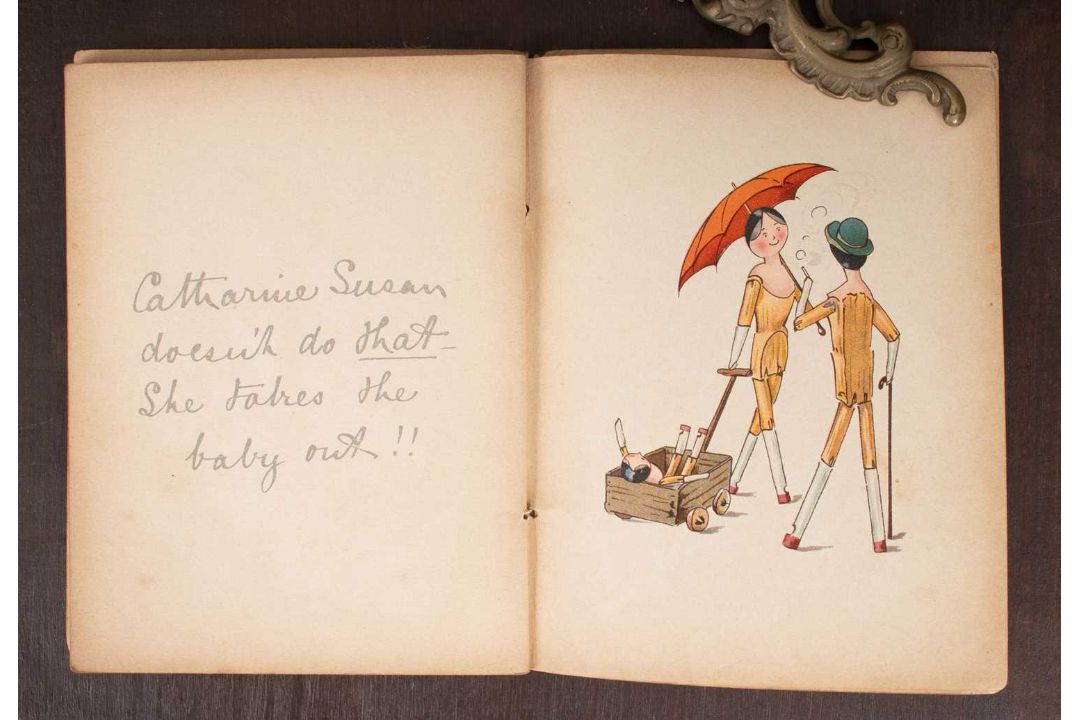 Catharine Susan
doesn't do that-
She takes the
baby out !!